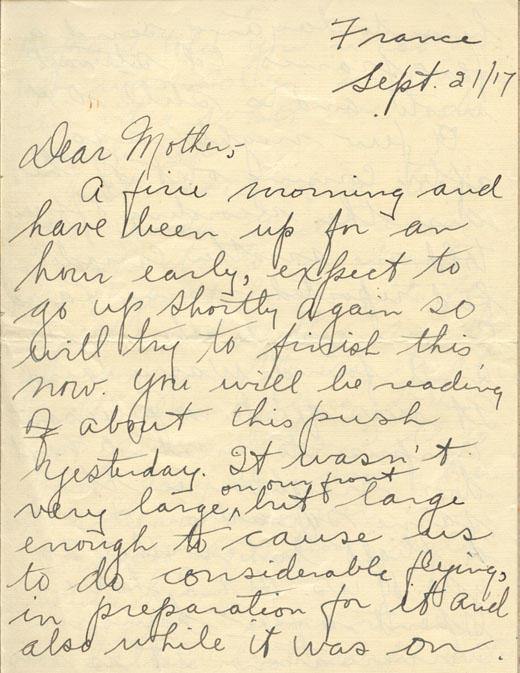 France
Sept. 21/17
Dear Mother,-
A fine morning and
have been up for an
hour early, expect to
go up shortly again so
will try to finish this
now. You will be reading
of about this push
yesterday. It wasn't
on our front
very large, but large
enough to cause us
to do considerable flying,
in preparation for it and
also while it was on.